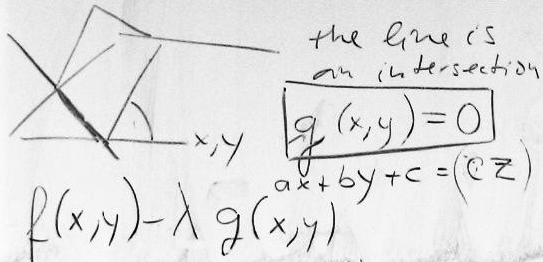 the line is
an intersection
g(x,y) = 0
x,y
ax + by + c = (cz)
f(x,y) - λ g(x,y)